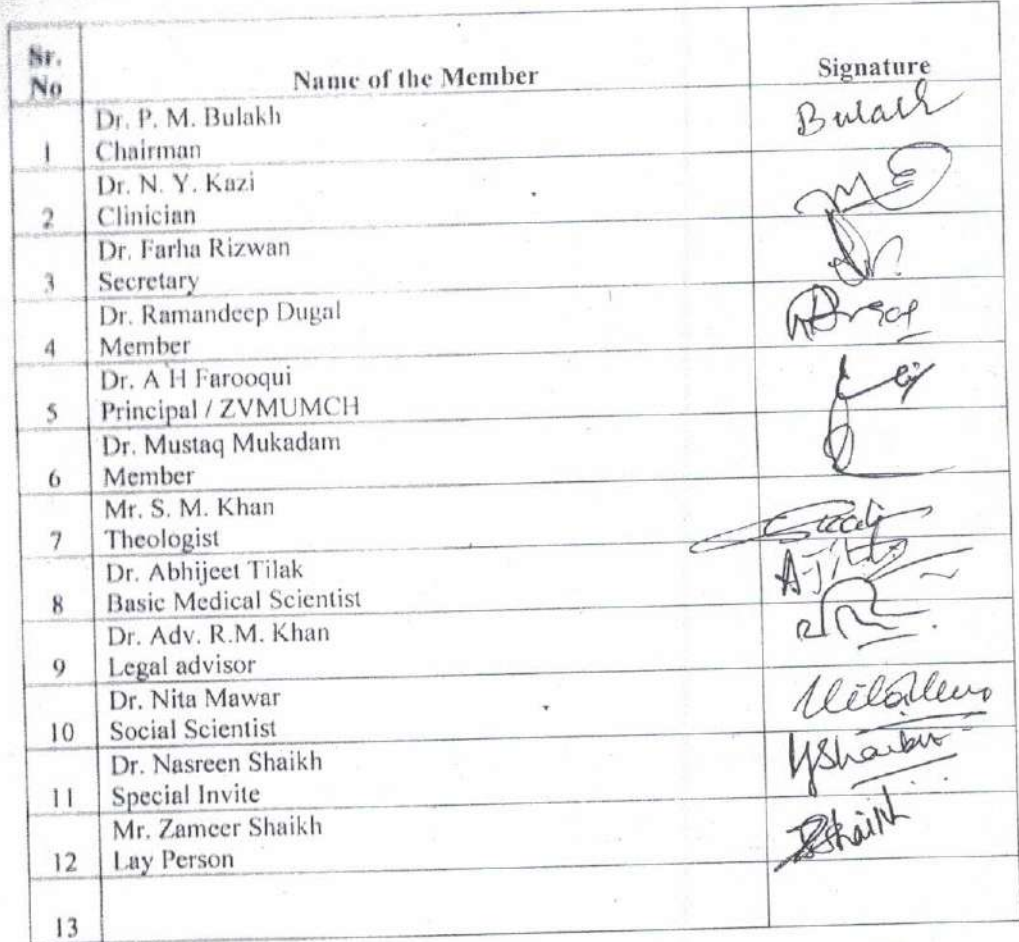 Sr.
No
Name of the Member
Signature
Dr. P. M. Bulakh
1 Chairman
Bulakh
Dr. N. Y. Kazi
2 Clinician
Dr. Farha Rizwan
3 Secretary
Dr. Ramandeep Dugal
4 Member
Dr. A H Farooqui
5 Principal / ZVMUMCH
Dr. Mustaq Mukadam
6 Member
Mr. S. M. Khan
7 Theologist
Dr. Abhijeet Tilak
8 Basic Medical Scientist
Dr. Adv. R.M. Khan
9 Legal advisor
Dr. Nita Mawar
10 Social Scientist
Dr. Nasreen Shaikh
11 Special Invite
Mr. Zameer Shaikh
12 Lay Person
ZShaikh
13